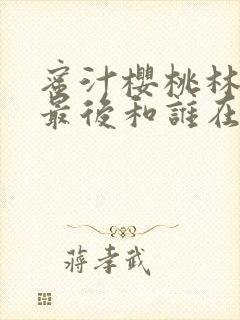 蜜汁櫻桃林
最後和誰在
蔣孝武